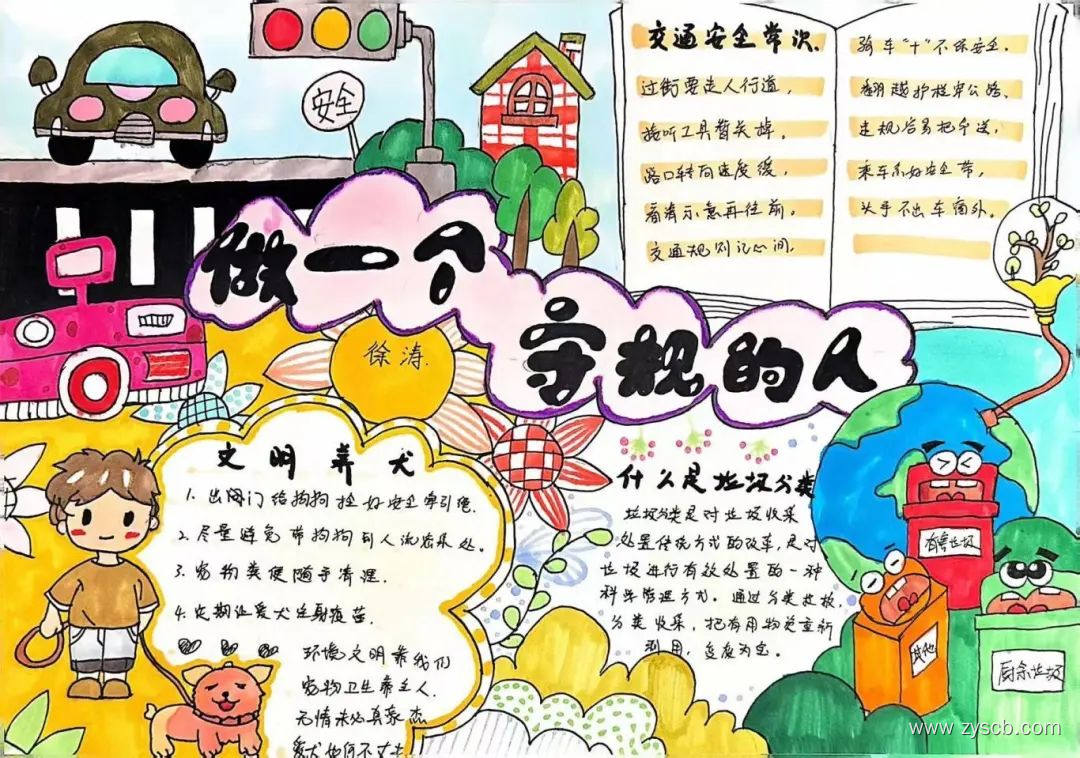 安全
交通安全常识.
过街要走人行道,
接听工具暂关掉。
路口转向速度缓,
看清示意再往前。
交通规则记心间,
骑车“十”不保安全.
翻越护栏穿公路、
违规容易把命送,
乘车系好安全带,
头手不出车窗外。
做一个
守规的人
徐涛.
文明养犬
1. 出门给狗狗拴好安全牵引绳.
2. 尽量避免带狗狗到人流密集处。
3. 宠物粪便随手清理.
4. 定期让爱犬注射疫苗.
环境文明靠我们
宠物卫生靠主人.
无情未必真豪杰
爱犬如何不丈夫
什么是垃圾分类
垃圾分类是对垃圾收集
处置传统方式的改革,是对
垃圾进行有效处置的一种
科学管理方式。通过分类投放、
分类收集,把有用物资重新
利用,变废为宝。
有害垃圾
其他
厨余垃圾
www.zyscb.com